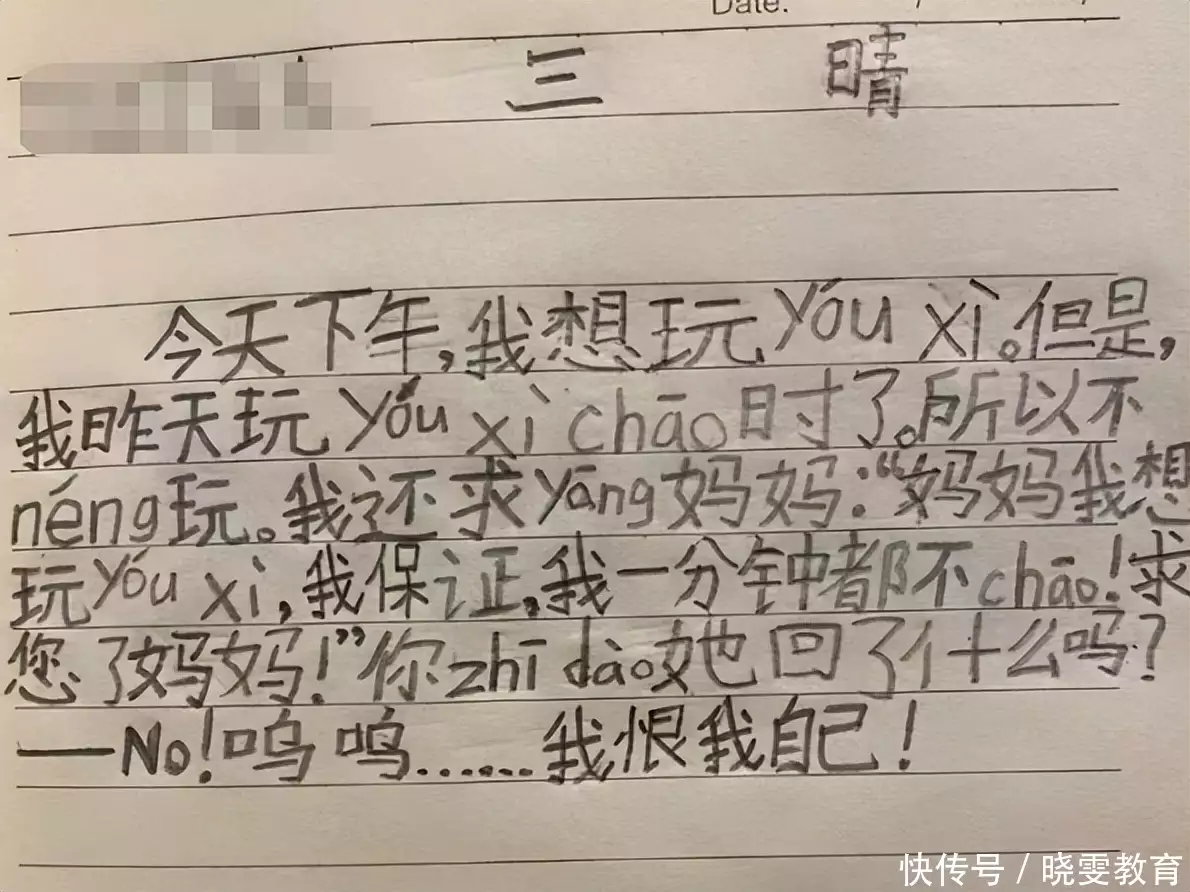 Date:
三 晴
今天下午,我想玩yóu xì。但是,
我昨天玩yóu xì chāo时了。所以不
néng玩。我还求yāng妈妈:“妈妈我想
玩yóu xì,我保证,我一分钟都不chāo!求
您了妈妈!”你zhī dào她回了什么吗?
—No!呜呜……我恨我自己!
快传号/晓雯教育